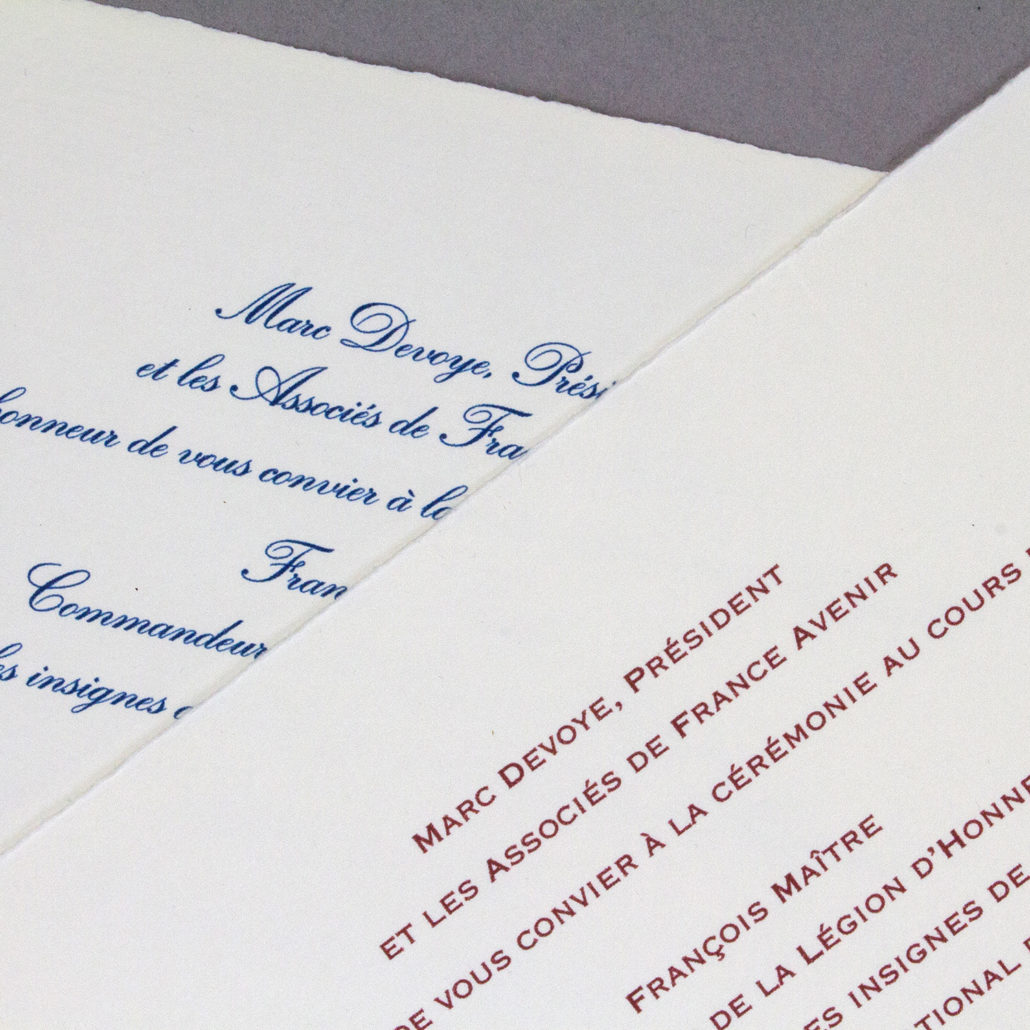 Marc Devoye, Prési
et les Associés de Fra
honneur de vous convier à la
Fran
Commandeur
es insignes
MARC DEVOYE, PRÉSIDENT
ET LES ASSOCIÉS DE FRANCE AVENIR
DE VOUS CONVIER À LA CÉRÉMONIE AU COURS
FRANÇOIS MAÎTRE
DE LA LÉGION D'HONNE
ES INSIGNES DE
TIONAL